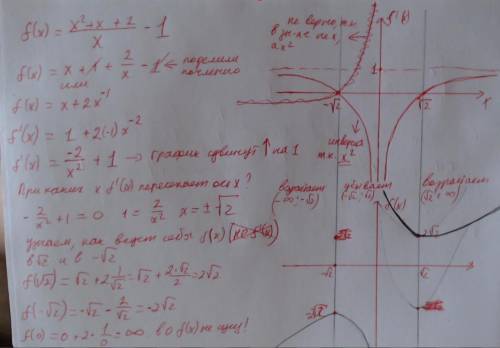 f(x) = \frac{x²+x+2}{x} - 1
f(x) = x + 1 + \frac{2}{x} - 1 ← поделили почленно
или
f(x) = x + 2x⁻¹
f'(x) = 1 + 2(-1)x⁻²
f'(x) = \frac{-2}{x²} + 1 → график сдвинут ↑ на 1
При каких x f'(x) пересекает ось x?
-\frac{2}{x²} + 1 = 0 1 = \frac{2}{x²} x = ±√2
узнаем, как ведет себя f(x)
в √2 и в -√2
f(√2) = √2 + 2\frac{1}{√2} = √2 + \frac{2√2}{2} = 2√2
f(-√2) = -√2 - \frac{2}{√2} = -2√2
f(0) = 0 + 2·\frac{1}{0} = ∞ в 0 f(x) не сущ!
не верно, т.к.
в зн-ле не x,
а x²
f'(x)
1
-√2
√2
x
инверсия
т.к. x²
возрастает
(-∞; -√2)
убывает
возрастает
(√2; +∞)
f(x)
2√2
-√2
√2
-2√2